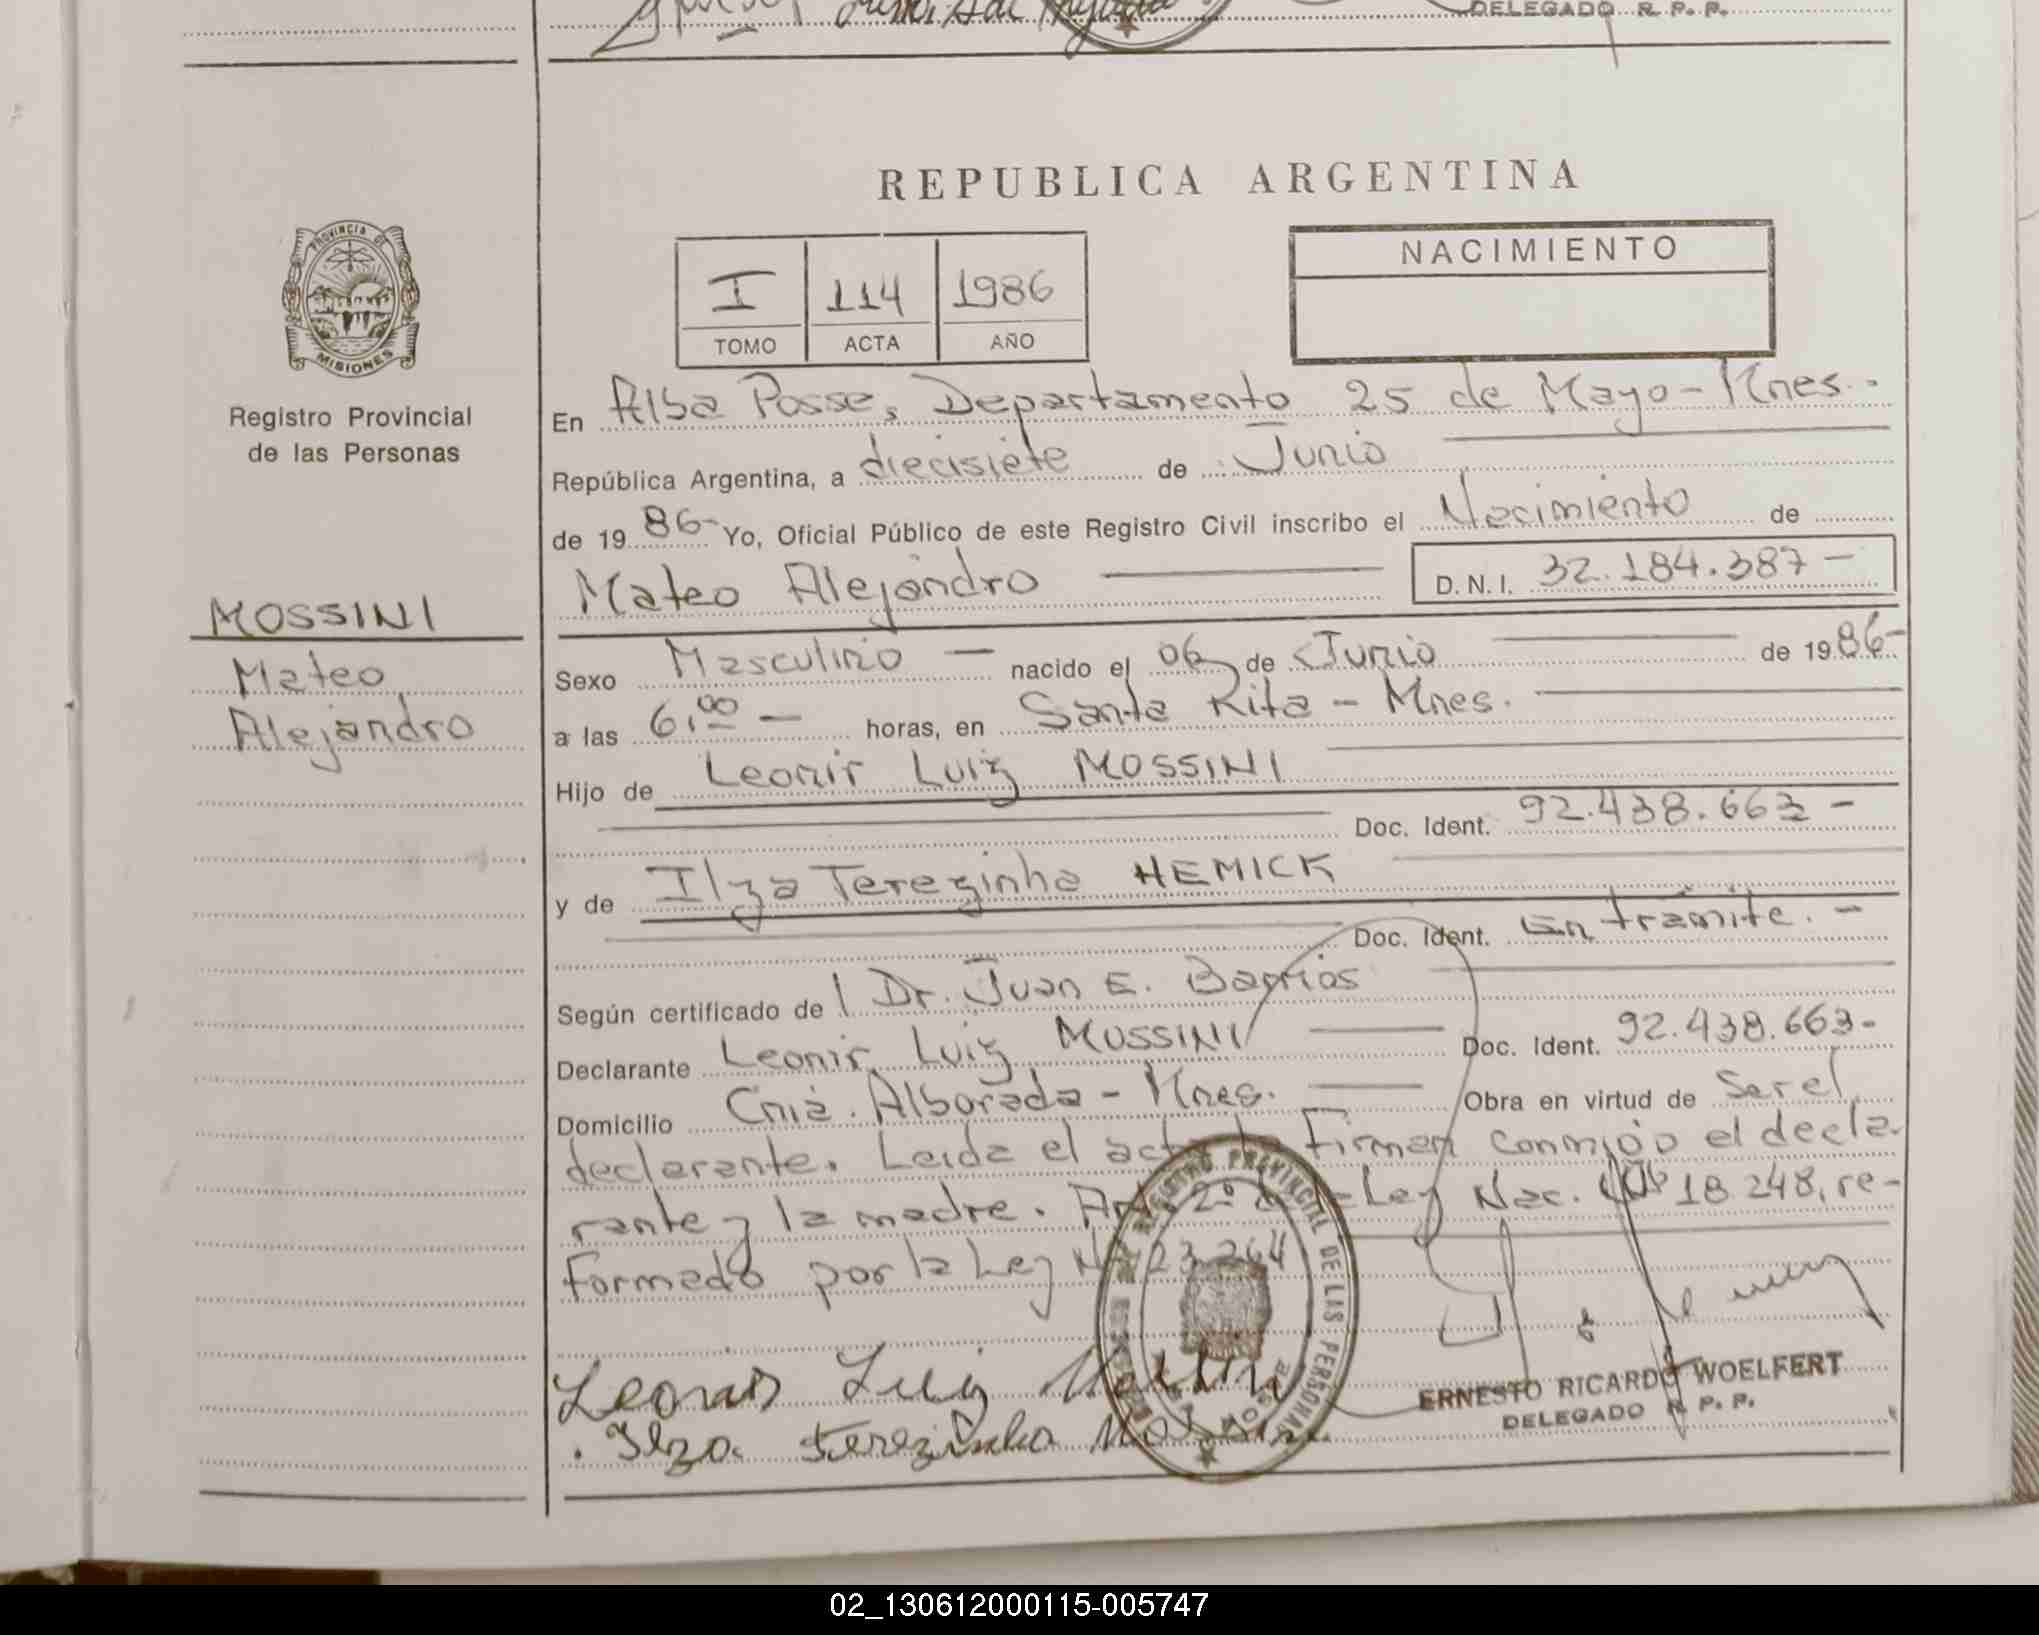 DELEGADO R. P. P.
REPUBLICA ARGENTINA
PROVINCIA DE
MISIONES
Registro Provincial
de las Personas
I 114 1986
TOMO ACTA AÑO
NACIMIENTO
En Alba Posse, Departamento 25 de Mayo - Mnes.-
República Argentina, a diecisiete de Junio
de 1986- Yo, Oficial Público de este Registro Civil inscribo el Nacimiento de
Mateo Alejandro D. N. I. 32.184.387-
MOSSINI
Mateo
Alejandro
Sexo Masculino - nacido el 06 de Junio de 1986-
a las 6,00 - horas, en Santa Rita - Mnes.
Hijo de Leonir Luiz MOSSINI
Doc. Ident. 92.438.663 -
y de Ilza Terezinha HEMICK
Doc. Ident. En trámite. -
Según certificado de Dr. Juan E. Barrios
Declarante Leonir Luiz MOSSINI Doc. Ident. 92.438.663-
Domicilio Cnia. Alborada - Mnes. Obra en virtud de Ser el
declarante. Leida el acta la Firman conmigo el decla-
rante y la madre. Art. 2º de la Ley Nac. Nº 18.248, re-
formado por la Ley Nº 23.264
REGISTRO PROVINCIAL DE LAS PERSONAS
POSSE
Leonir Luiz Mossini
Ilza terezinha Mossini
ERNESTO RICARDO WOELFERT
DELEGADO R. P. P.
02_130612000115-005747